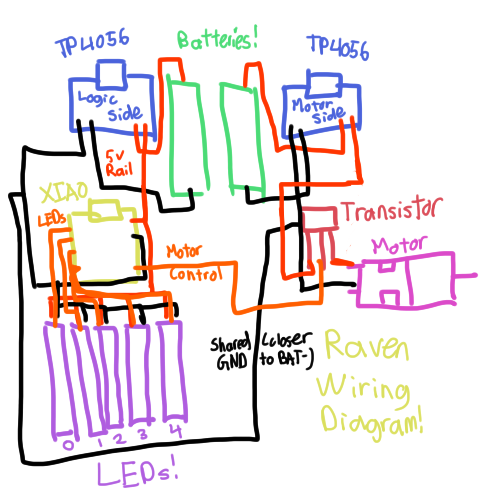 TP4056
Batteries!
TP4056
Logic
Side
Motor
Side
5v
Rail
XIAO
LEDs
Transistor
Motor
Motor
Control
Shared (closer
GND to BAT-)
Raven
Wiring
Diagram!
0 1 2 3 4
LEDs!